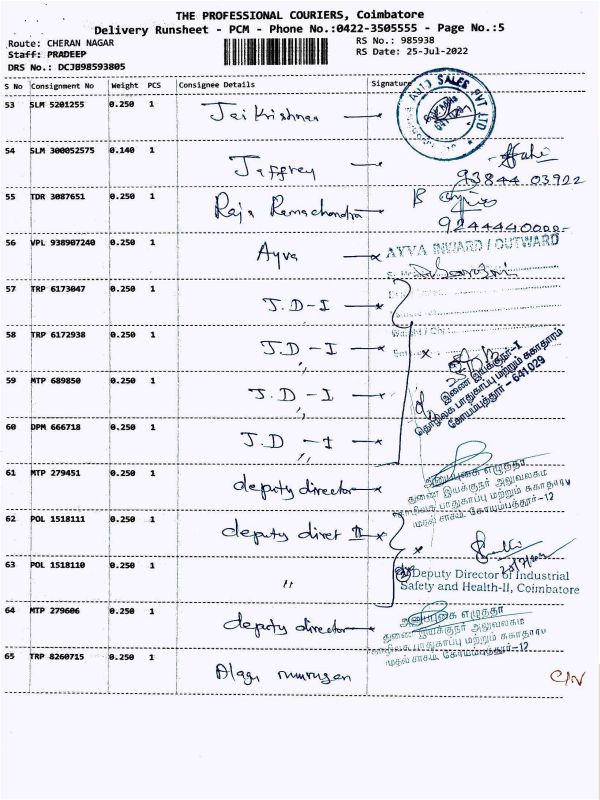 THE PROFESSIONAL COURIERS, Coimbatore
Delivery Runsheet - PCM - Phone No.:0422-3505555 - Page No.:5
Route: CHERAN NAGAR
Staff: PRADEEP
DRS No.: DCJB98593805
RS No.: 985938
RS Date: 25-Jul-2022
S No Consignment No Weight PCS Consignee Details Signature
53 SLM 5201255 0.250 1 Jai Krishnaa
AUTO SALES PVT LTD
54 SLM 300052575 0.140 1 Jaffrey
93844 03922
55 TDR 3087651 0.250 1 Raja Ramachandra
56 VPL 938907240 0.250 1 Ayva
AYVA INWARD / OUTWARD
57 TRP 6173047 0.250 1 J.D-I
58 TRP 6172938 0.250 1 J.D-I
இணை இயக்குநர்-I
தொழிலக பாதுகாப்பு மற்றும் சுகாதாரம்
கோயம்புத்தூர் - 641029
59 MTP 689850 0.250 1 J.D-I
60 DPM 666718 0.250 1 J.D-I
61 MTP 279451 0.250 1 deputy director
துணை இயக்குநர் அலுவலகம்
பாதுகாப்பு மற்றும் சுகாதாரம்
கோயம்புத்தூர்-12
62 POL 1518111 0.250 1 deputy diret II
63 POL 1518110 0.250 1 "
Deputy Director of Industrial
Safety and Health-II, Coimbatore
64 MTP 279606 0.250 1 deputy director
துணை இயக்குநர் அலுவலகம்
பாதுகாப்பு மற்றும் சுகாதாரம்
கோயம்புத்தூர்-12
65 TRP 8260715 0.250 1 Alagu murugan
C/N